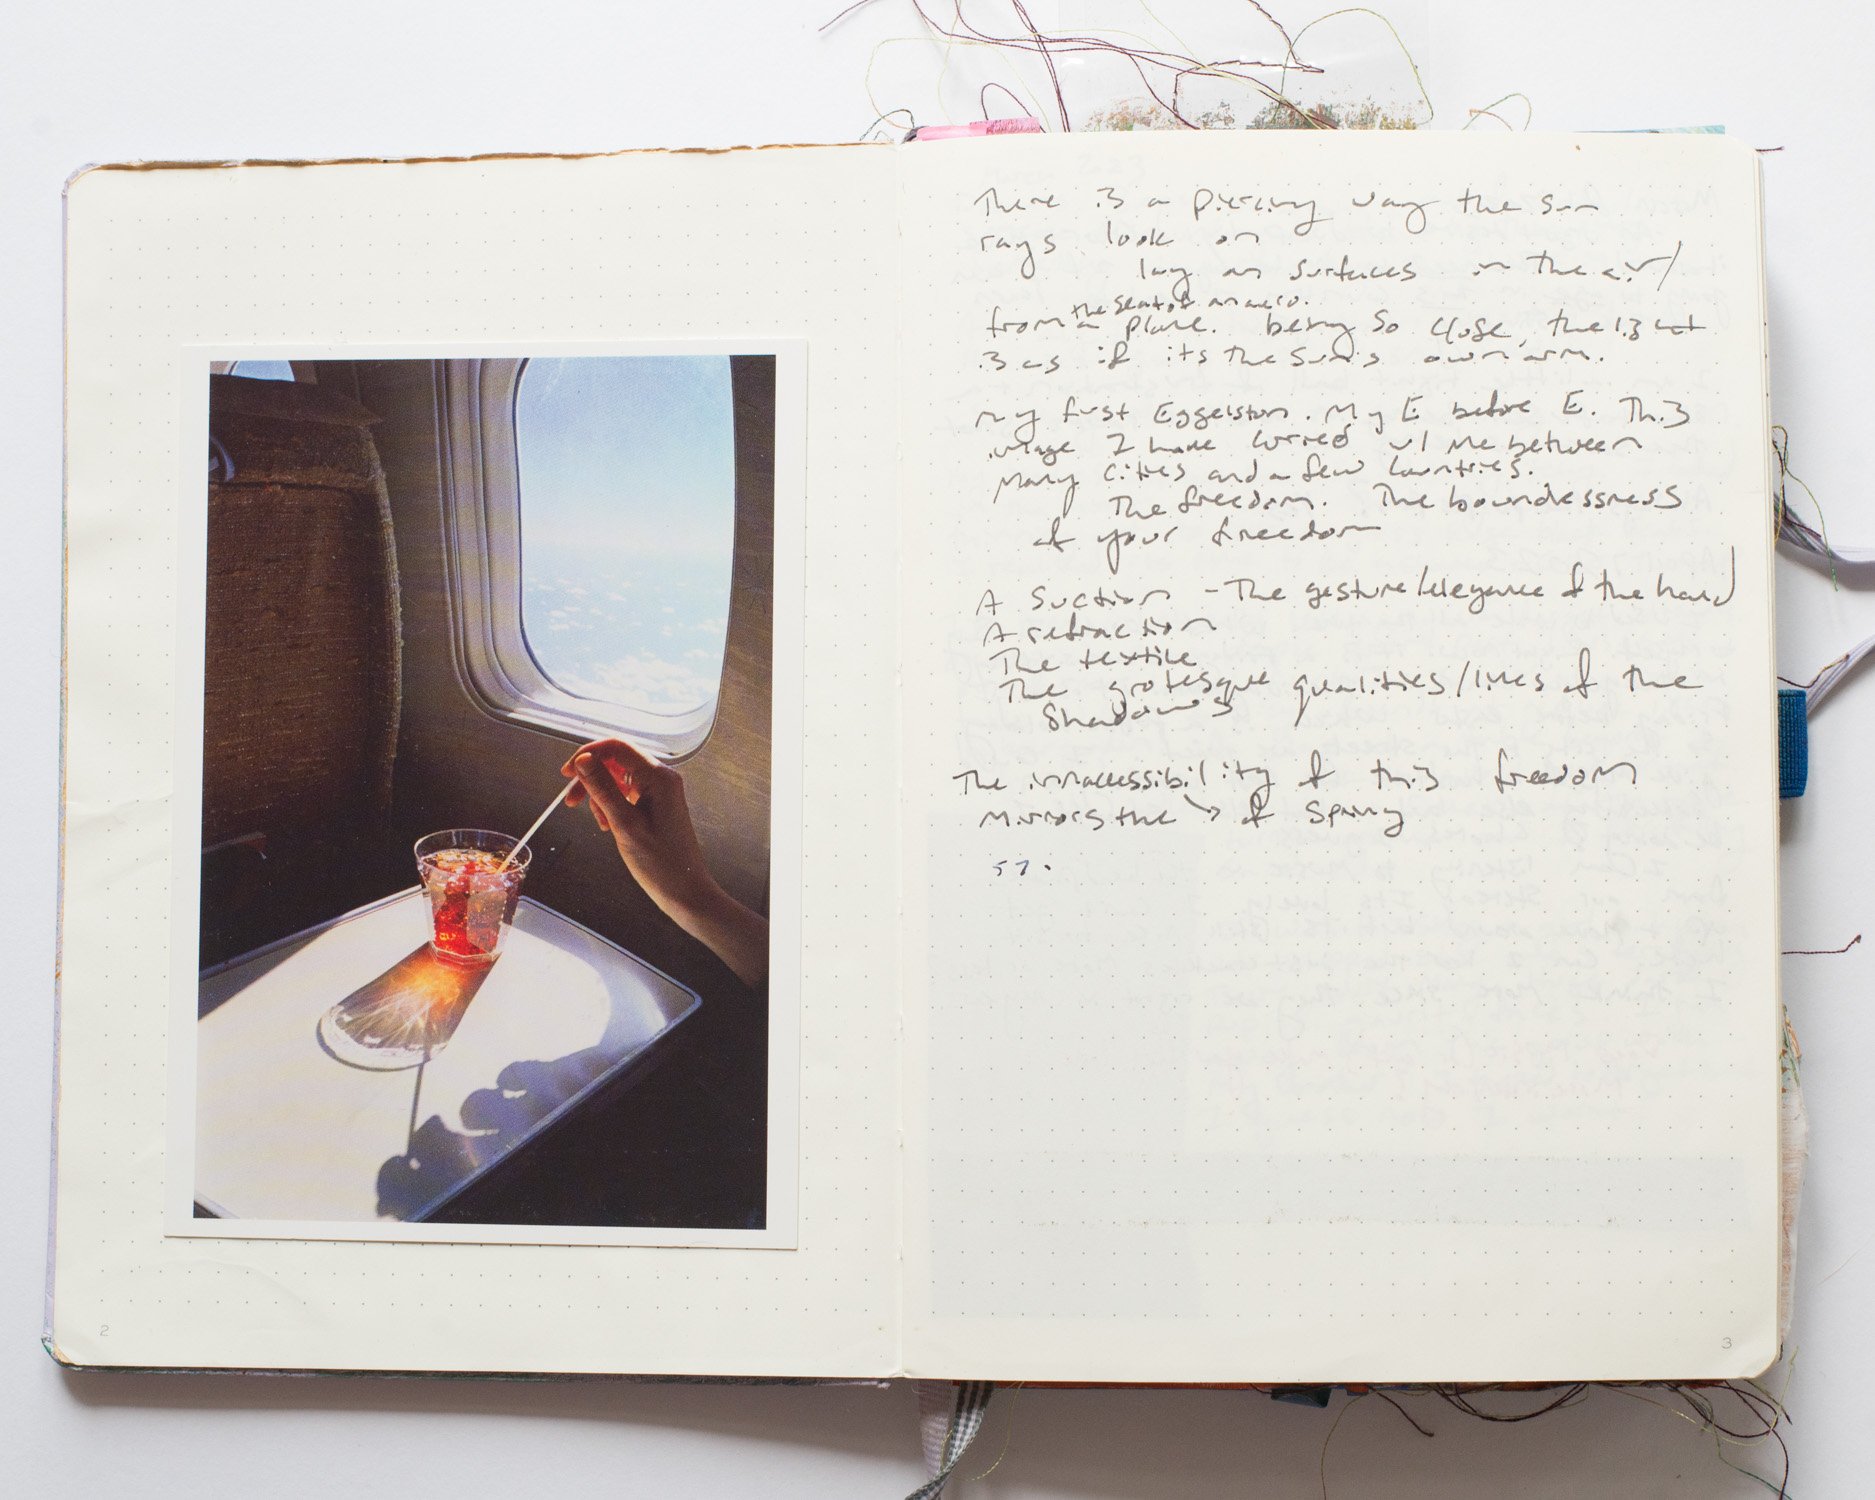 There is a piercing way the sun
rays look on
lay on surfaces in the air/
the seat of an aero.
from a plane. being so close, the light
is as if its the sun's own arm.
My first Eggelston. My E before E. This
image I have carried w/ me between
many cities and a few countries.
The freedom. The boundlessness
of your freedom
A suction - The gesture/elegance of the hand
A refraction
The textile
The grotesque qualities/lines of the
shadows
The innaccessibility of this freedom
mirrors the of spring
57.
2
3